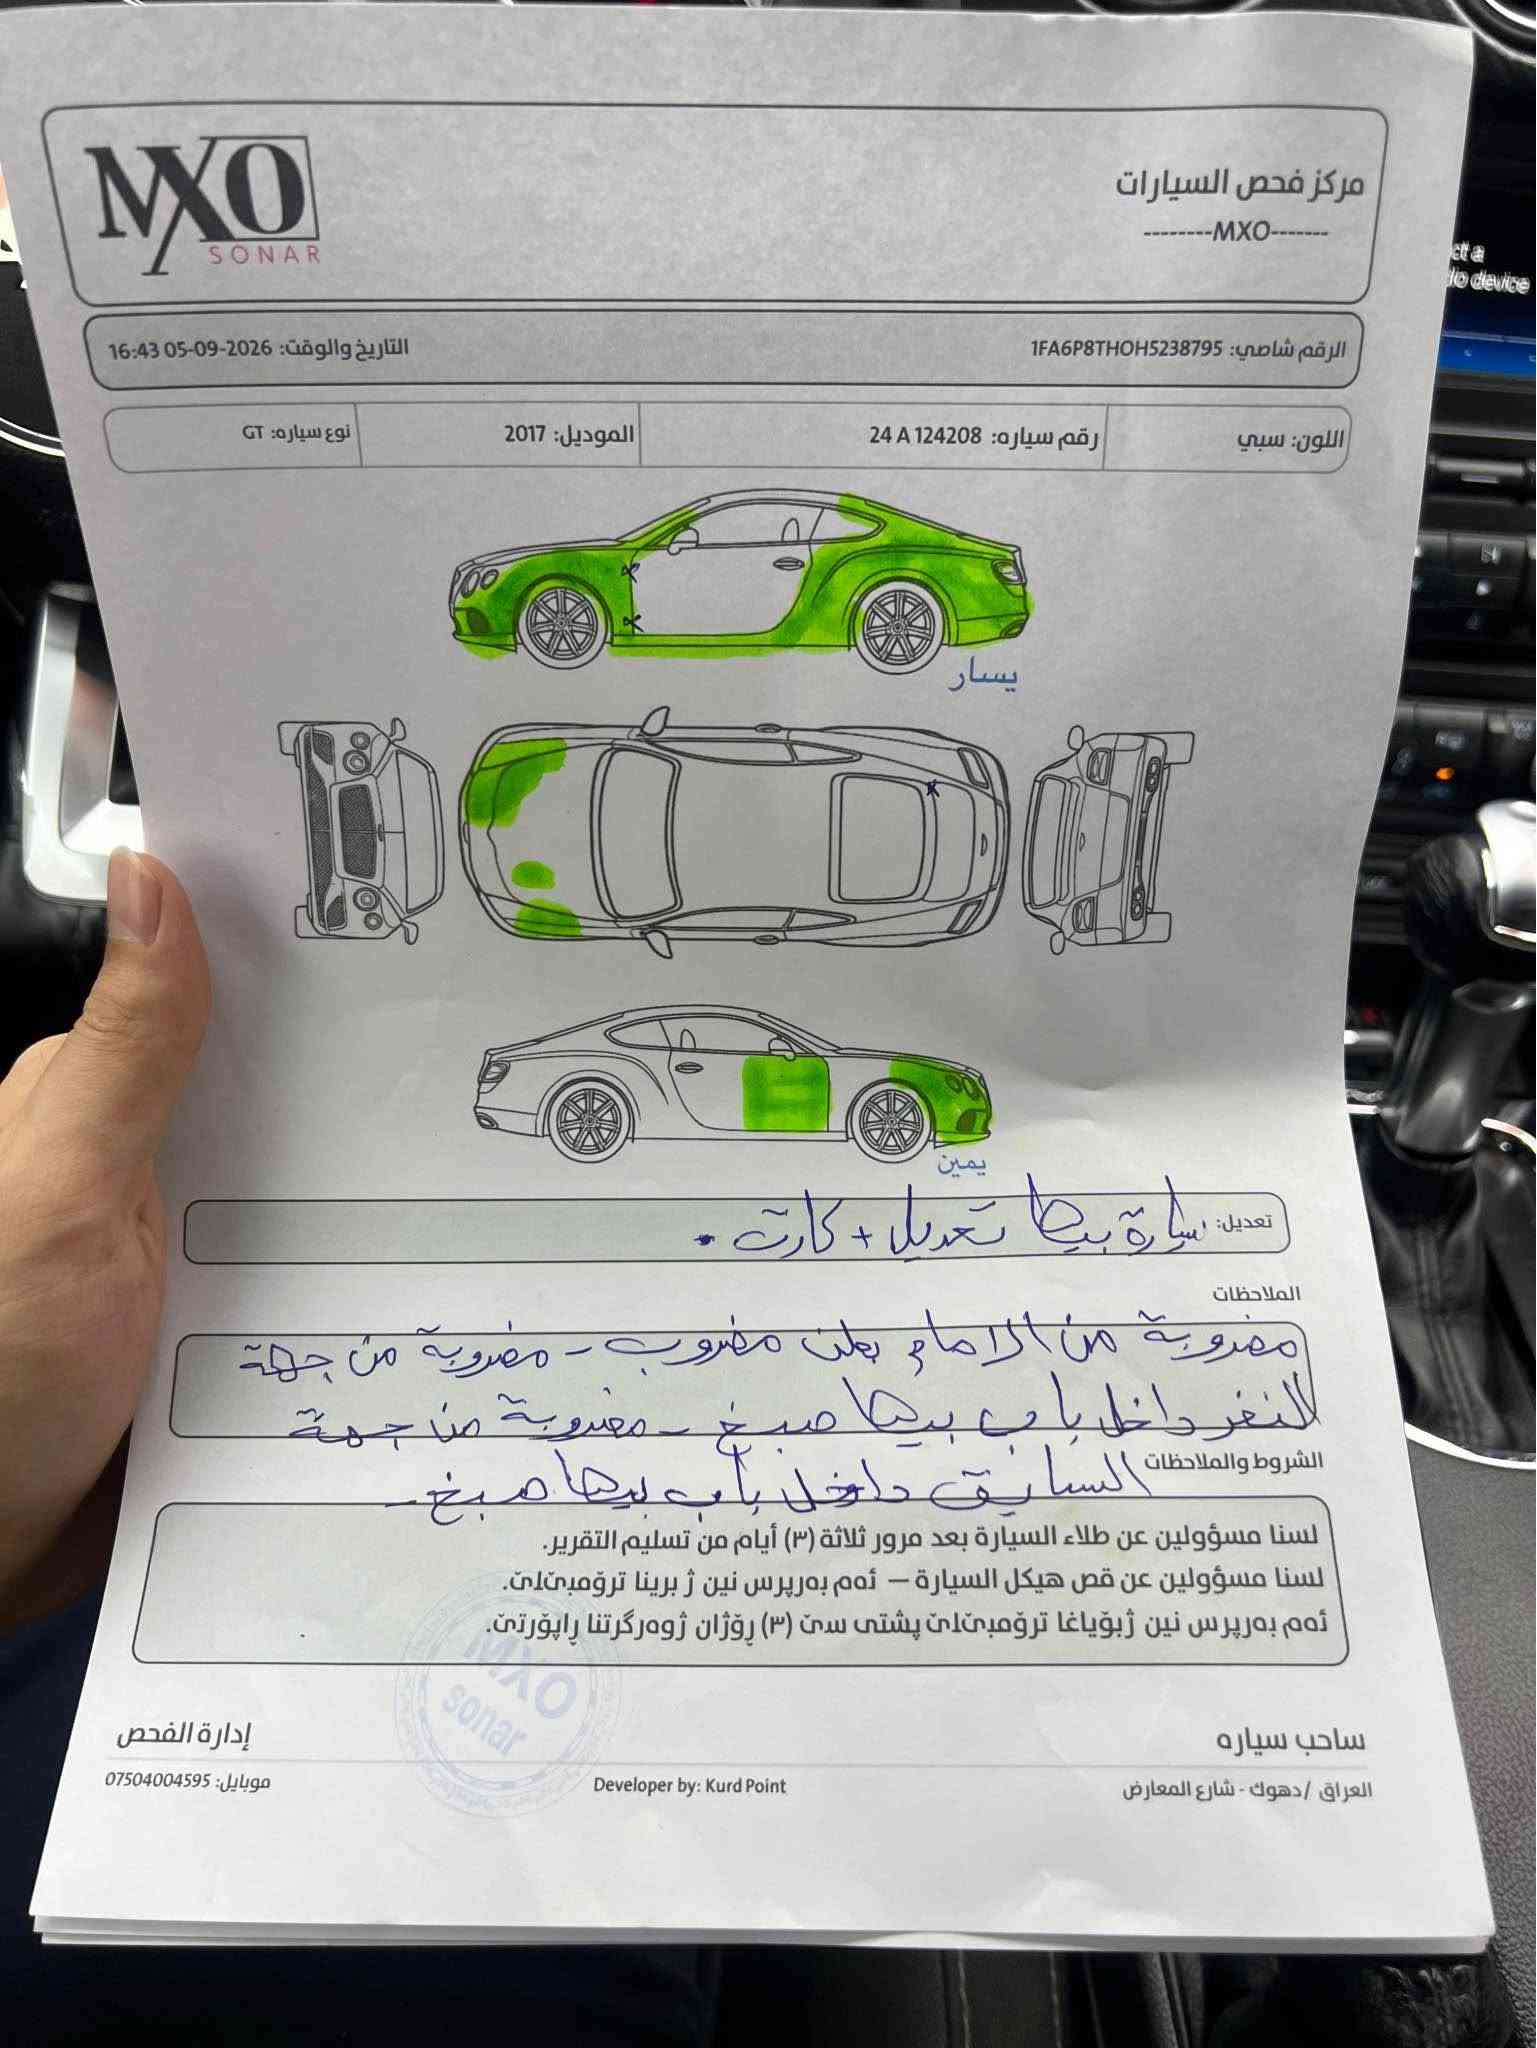 MXO
SONAR
مركز فحص السيارات
--------MXO-------
الرقم شاصي: 1FA6P8TH0H5238795
التاريخ والوقت: 2026-09-05 16:43
اللون: سبي
رقم سياره: 24 A 124208
الموديل: 2017
نوع سياره: GT
يسار
يمين
تعديل: سيارة بيها تعديل + كارت .
الملاحظات
مضروبة من الامام بلن مضروب - مضروبة من جهة
النفر داخل باب بيها صبغ - مضروبة من جهة
السايق داخل باب بيها صبغ -
الشروط والملاحظات
لسنا مسؤولين عن طلاء السيارة بعد مرور ثلاثة (٣) أيام من تسليم التقرير.
لسنا مسؤولين عن قص هيكل السيارة — ئەم بەرپرس نین ژ برینا ترۆمبێلێ.
ئەم بەرپرس نین ژبۆیاغا ترۆمبێلێ پشتی سێ (٣) ڕۆژان ژوەرگرتنا ڕاپۆرتێ.
MXO
sonar
ساحب سياره
إدارة الفحص
العراق /دهوك - شارع المعارض
Developer by: Kurd Point
موبايل: 07504004595
ct a
io device